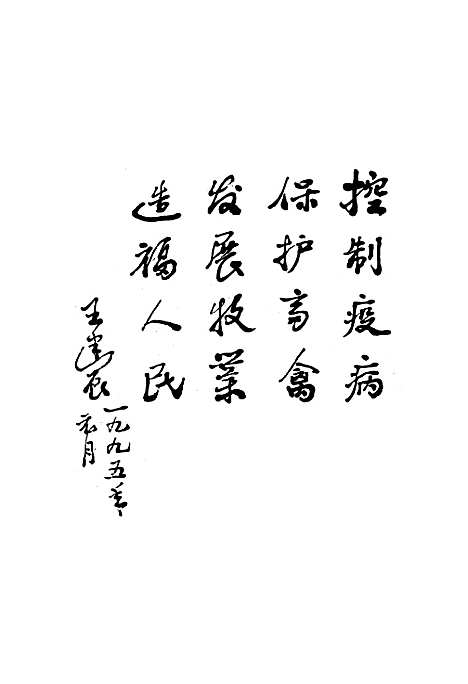 控制疫病
保护畜禽
发展牧業
造福人民
王建辰
一九九五年
元月